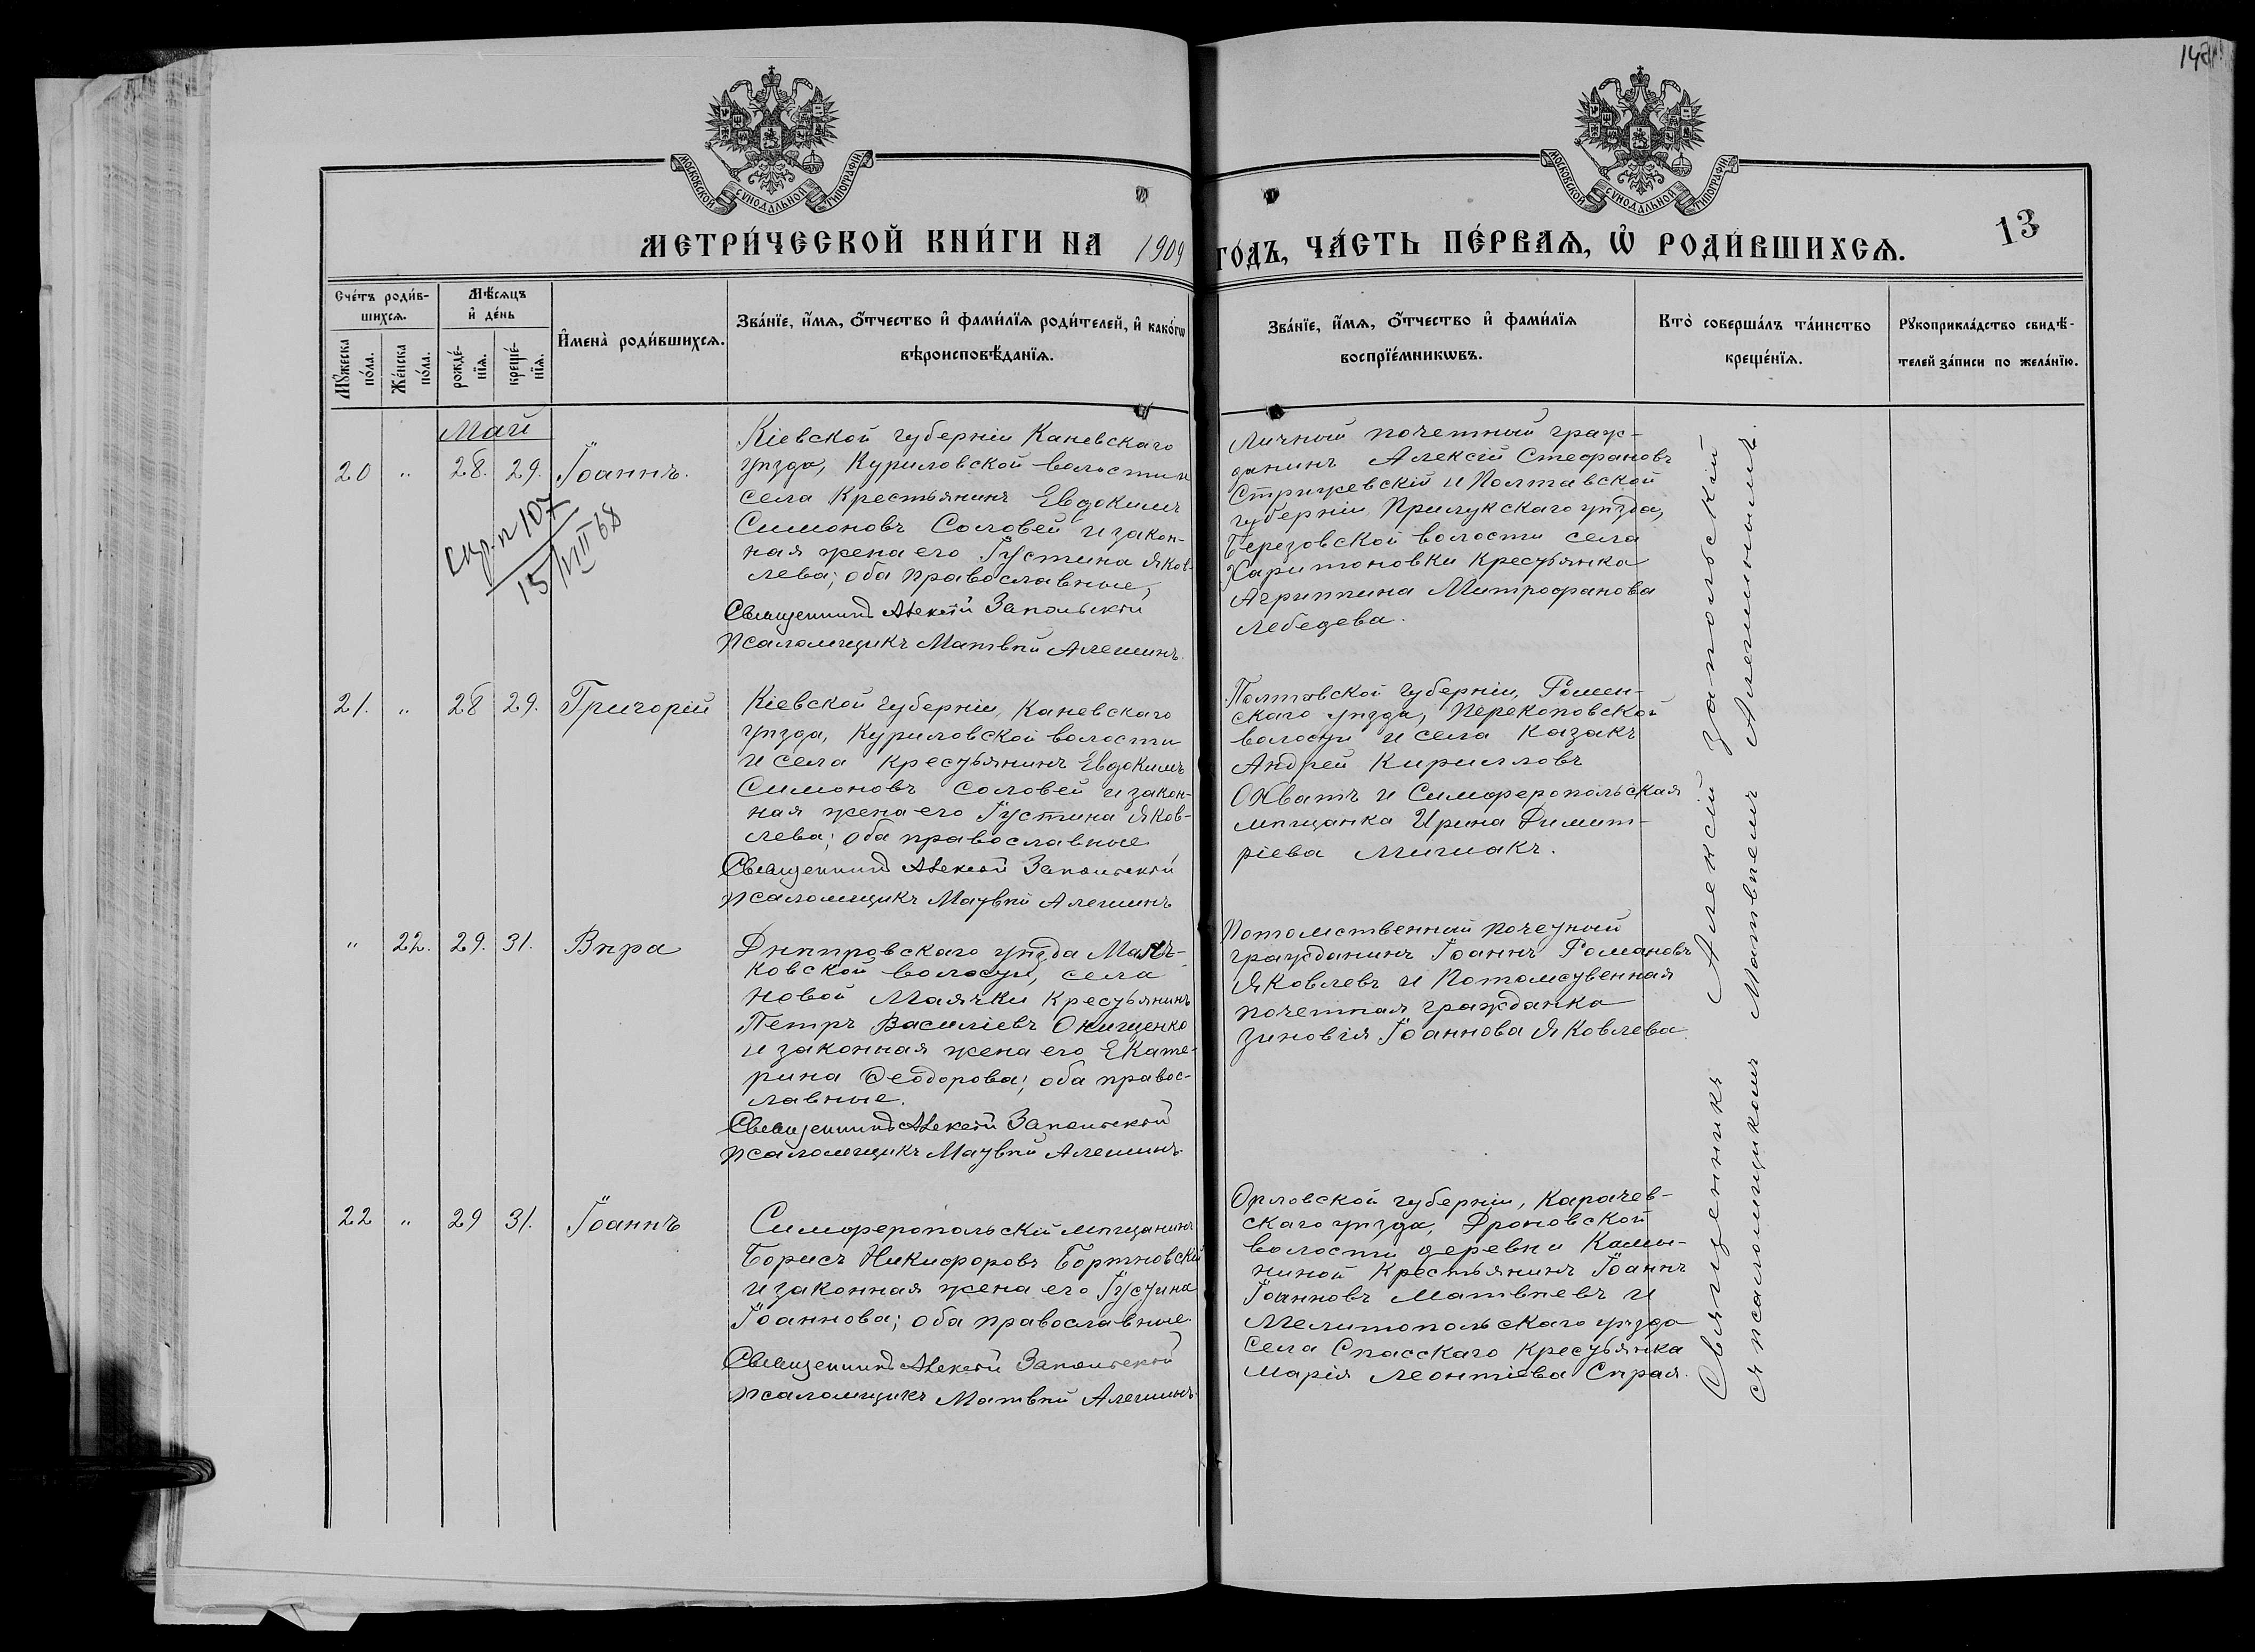 148
МОСКОВСКОЙ СѴНОДАЛЬНОЙ ТИПОГРАФІИ
МОСКОВСКОЙ СѴНОДАЛЬНОЙ ТИПОГРАФІИ
МЕТРИ́ЧЕСКОЙ КНИ́ГИ НА 1909 ГО́ДЪ, ЧА́СТЬ ПЕ́РВАѦ, Ѽ РОДИ́ВШИХСѦ.
13
Сче́тъ роди́в-
шихсѧ.
Мѣ́сѧцъ
и҆ де́нь
Мꙋ́жеска по́ла.
Же́нска по́ла.
рожде́-
нїѧ.
креще́-
нїѧ.
И҆мена̀ роди́вшихсѧ.
Зва́нїе, и҆́мѧ, ѻ҆́тчество и҆ фами́лїѧ роди́телей, и҆ како́гѡ
вѣроисповѣ́данїѧ.
Зва́нїе, и҆́мѧ, ѻ҆́тчество и҆ фами́лїѧ
воспрїе́мникѡвъ.
Кто̀ соверша́лъ та́инство
креще́нїѧ.
Рꙋкоприкла́дство свидѣ́-
телей за́писи по жела́нїю.
Май
20 " 28. 29. Іоаннъ.
спр. п 107
15/VIII 68
Кіевской губерніи Каневскаго
уѣзда, Куриловской волости и
села Крестьянинъ Евдокимъ
Симоновъ Соловей и закон-
ная жена его Іустина Яков-
лева; оба православные,
Священникъ Алексѣй Запольскій
Псаломщикъ Матвѣй Алешинъ.
Личный почетный граж-
данинъ Алексѣй Стефановъ
Стрижевскій и Полтавской
губерніи, Прилукскаго уѣзда,
Березовской волости села
Харитоновки Крестьянка
Агриппина Митрофанова
Лебедева.
21. " 28 29. Григорій
Кіевской губерніи, Каневскаго
уѣзда, Куриловской волости
и села крестьянинъ Евдокимъ
Симоновъ Соловей и закон-
ная жена его Іустина Яков-
лева; оба православные
Священникъ Алексѣй Запольскій
Псаломщикъ Матвѣй Алешинъ
Полтавской губерніи, Ромен-
скаго уѣзда, Перекоповской
волости и села Казакъ
Андрей Кирилловъ
Охватъ и Симферопольская
мѣщанка Ирина Димит-
ріева
" 22. 29. 31. Вѣра
Днѣпровскаго уѣзда
ковской волости, села
Новой Маячки Крестьянинъ
Петръ Василіевъ Онищенко
и законная жена его Екате-
рина Ѳеодорова; оба правос-
лавные.
Священникъ Алексѣй Запольскій
Псаломщикъ Матвѣй Алешинъ.
Потомственный почетный
гражданинъ Іоаннъ Романовъ
Яковлевъ и Потомственная
почетная гражданка
Зиновія Іоаннова Яковлева.
22 " 29 31. Іоаннъ
Симферопольскій мѣщанинъ
Борисъ Никифоровъ Бортновскій
и законная жена его Іустина
Іоаннова; оба православные.
Священникъ Алексѣй Запольскій
Псаломщикъ Матвѣй Алешинъ.
Орловской губерніи, Карачев-
скаго уѣзда, Дроновской
волости деревни Камы-
ниной Крестьянинъ Іоаннъ
Іоанновъ Матвѣевъ и
Мелитопольскаго уѣзда
села Спасскаго Крестьянка
Марія Леонтіева
Священникъ Алексій Запольскій
съ псаломщикомъ Матвѣемъ Алешинымъ.